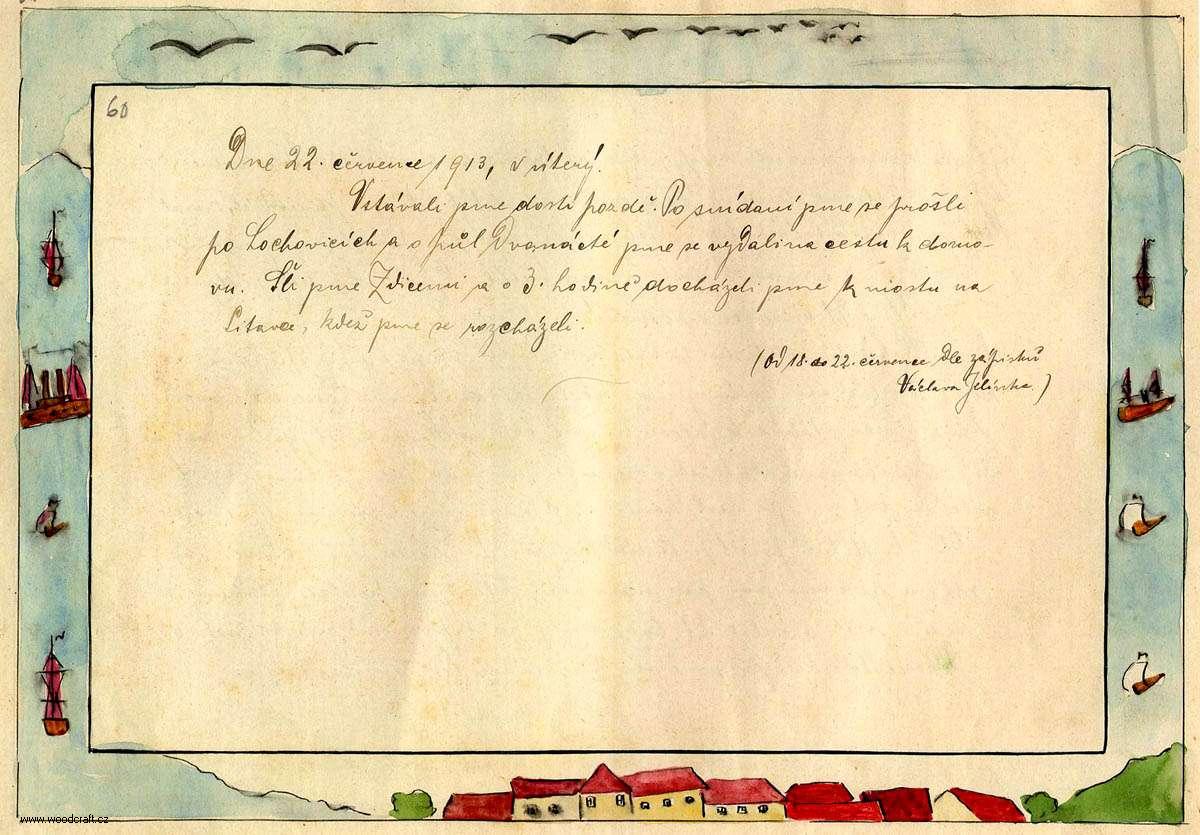 60
Dne 22. července 1913, v úterý.
Vstávali jsme dosti pozdě. Po snídaní jsme se prošli
po Lochovicích a o půl Dvanácté jsme se vydali na cestu k domo-
vu. Šli jsme Zdicemi a o 3. hodině docházeli jsme k mostu na
Litavce, kdež jsme se rozcházeli.
(Od 18. do 22. července Dle zápisků
Václava Jelínka.)
www.woodcraft.cz